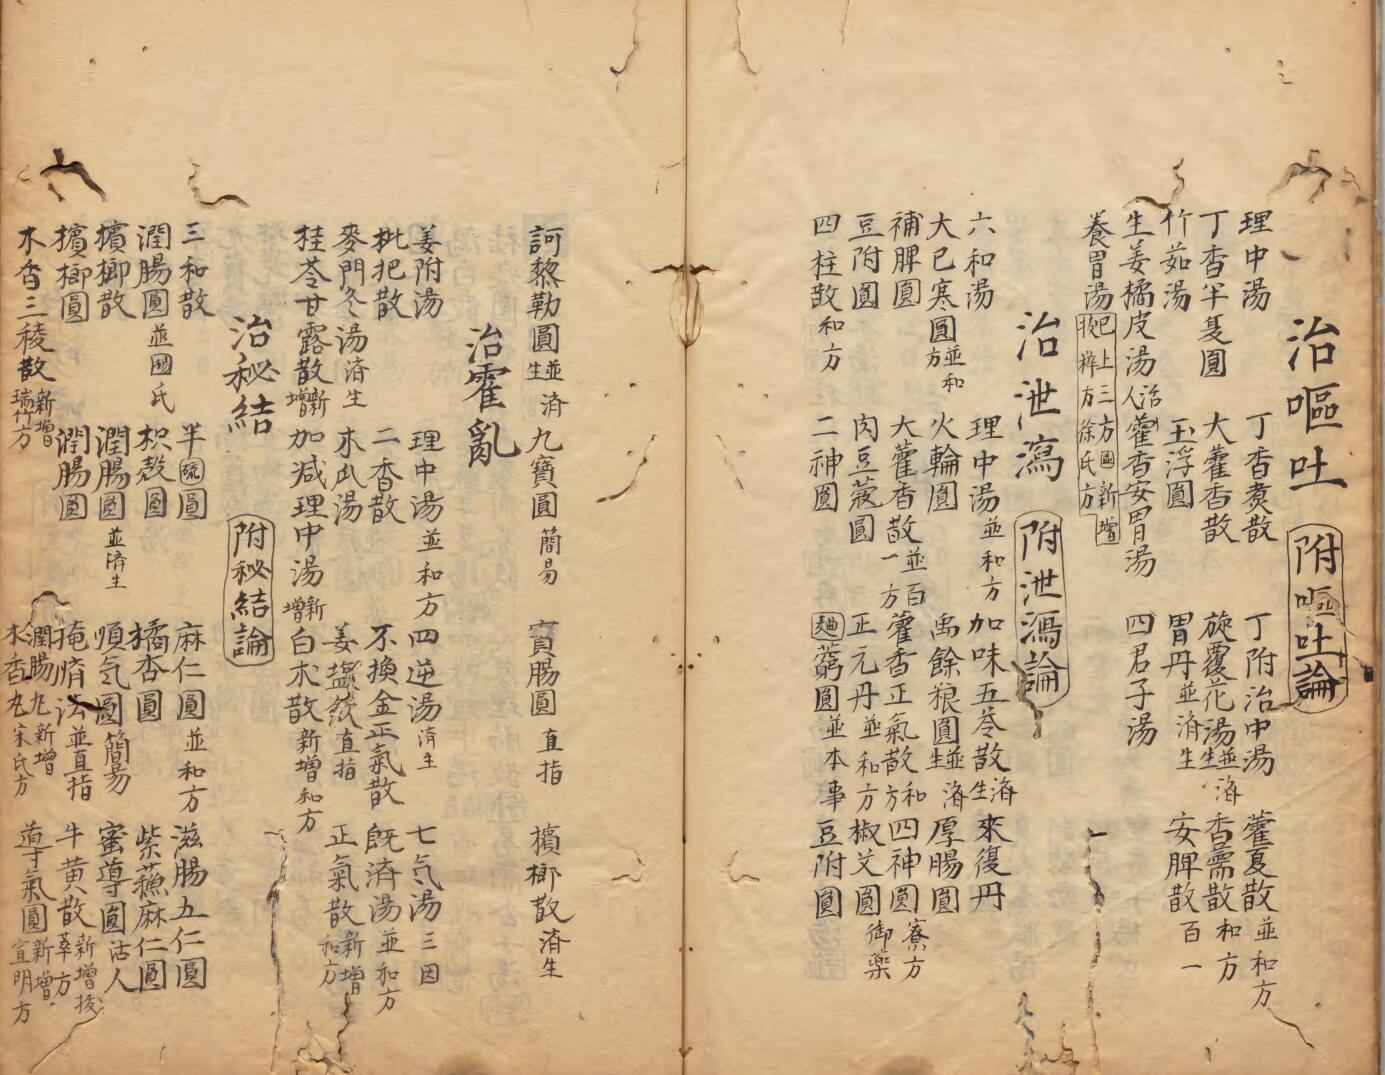 治嘔吐 附嘔吐論
理中湯 丁香煑散 丁附治中湯 藿夏散並和方
丁香半夏圓 大藿香散 旋覆花湯並済生 香薷散和方
竹茹湯 玉浮圓 胃丹並済生 安脾散百一
生姜橘皮湯活人 藿香安胃湯 四君子湯
養胃湯 已上三方圖新增 方徐氏方
治泄瀉 附泄瀉論
六和湯 理中湯並和方 加味五苓散済生 來復丹
大已寒圓並和方 火輪圓 禹餘粮圓並済生 厚腸圓
補脾圓 大藿香散並百一方 藿香正氣散和方 四神圓寮方
豆附圓 肉豆蔻圓 正元丹並和方 椒艾圓御藥
四柱散和方 二神圓 麯藭圓並本事 豆附圓
訶黎勒圓並済生 九寶圓簡易 實腸圓直指 檳榔散済生
治霍亂
姜附湯 理中湯並和方 四逆湯済生 七气湯三因
枇把散 二香散 不換金正氣散 既済湯並和方
麥門冬湯済生 木瓜湯 姜鹽飲直指 正氣散新增和方
桂苓甘露散新增 加減理中湯新增 白朮散新增和方
治秘結 附秘結論
三和散 半硫圓 麻仁圓並和方 滋腸五仁圓
潤腸圓並國氏 枳殼圓 橘杏圓 紫蘓麻仁圓
檳榔散 潤腸圓並済生 順气圓簡易 蜜導圓活人
檳榔圓 潤腸圓 掩臍法並直指 牛黃散新增拔萃方
木香三稜散新增瑞竹方 潤腸丸新增 木香丸宋氏方 導氣圓新增宣明方